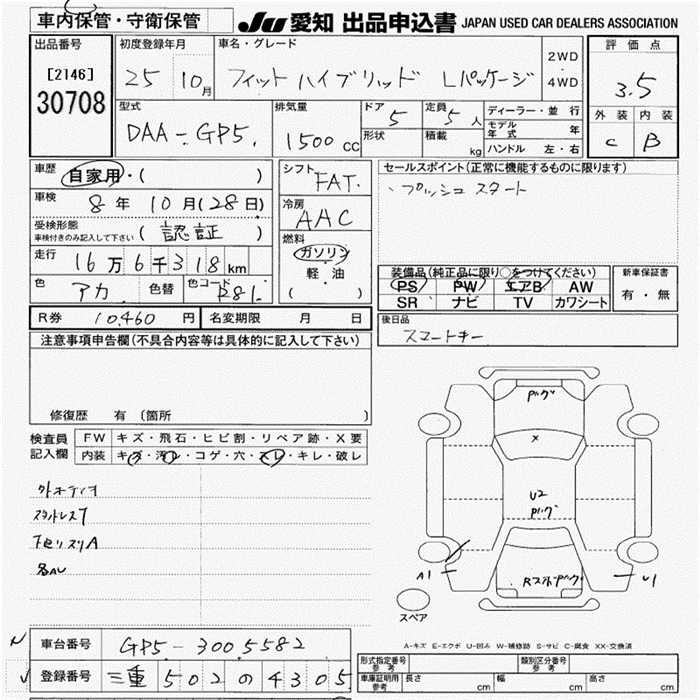 車内保管・守衛保管
JU 愛知 出品申込書 JAPAN USED CAR DEALERS ASSOCIATION
出品番号
[2146]
30708
初度登録年月
25 10月
車名・グレード
フィット ハイブリッド Lパッケージ
2WD
4WD
評価点
3.5
外装 内装
C B
型式
DAA-GP5.
排気量
1500cc
ドア
5
定員
5人
形状
積載
kg
ディーラー・並行
モデル年式 年
ハンドル 左・右
車歴
自家用・( )
車検
8年10月(28日)
受検形態
車検付きのみ記入して下さい
(認証)
走行
16万6千318km
色
アカ
色替
色コード
R81.
シフト
FAT.
冷房
AAC
燃料
ガソリン
軽油
( )
セールスポイント(正常に機能するものに限ります)
プッシュスタート
装備品(純正品に限り○をつけてください)
PS PW エアB AW
SR ナビ TV カワシート
新車保証書
有・無
R券 10,460円
名変期限 月 日
後日品
スマートキー
注意事項申告欄(不具合内容等は具体的に記入して下さい)
修復歴 有(箇所 )
検査員
記入欄
FW キズ・飛石・ヒビ割・リペア跡・X要
内装 キズ・汚れ・コゲ・穴・スレ・キレ・破レ
下廻リスリA
各AU
Pハゲ
×
U2
Pハゲ
A1
U1
スペア
A-キズ E-エクボ U-凹み W-補修跡 S-サビ C-腐食 XX-交換済
車台番号 GP5-3005582
登録番号 三重 502 の 4305
形式指定番号
参考
類別区分番号
参考
車庫証明用
参考
長さ cm 幅 cm 高さ cm